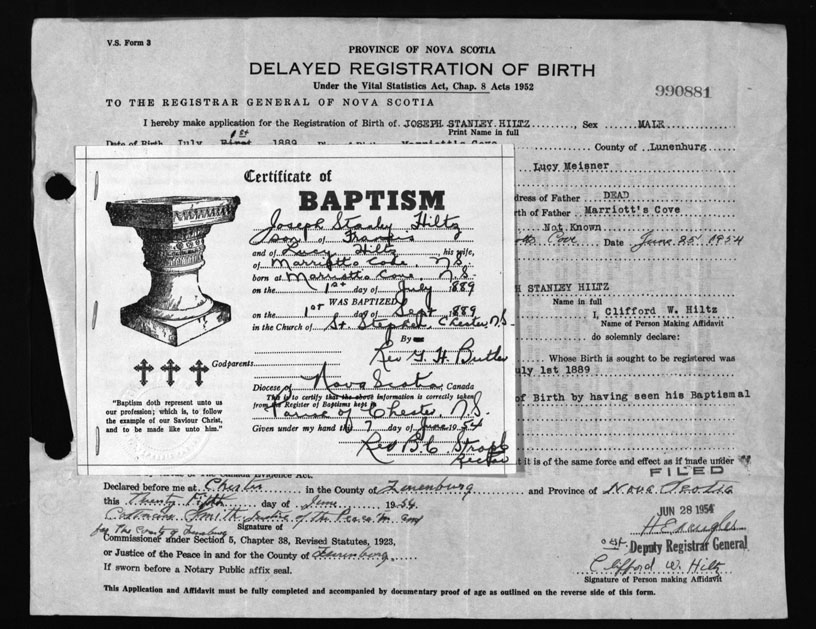 V.S. Form 3
PROVINCE OF NOVA SCOTIA
DELAYED REGISTRATION OF BIRTH
Under the Vital Statistics Act, Chap. 8 Acts 1952
990881
TO THE REGISTRAR GENERAL OF NOVA SCOTIA
I hereby make application for the Registration of Birth of JOSEPH STANLEY HILTZ, Sex MALE
Print Name in full
1st
Date of Birth July First 1889 Marriott's Cove County of Lunenburg
Lucy Meisner
dress of Father DEAD
rth of Father Marriott's Cove
Not Known
Cove Date June 25 1954
H STANLEY HILTZ
Name in full
I, Clifford W. Hiltz
Name of Person Making Affidavit
do solemnly declare:
Whose Birth is sought to be registered was
uly 1st 1889
of Birth by having seen his Baptismal
it is of the same force and effect as if made under
Certificate of
BAPTISM
Joseph Stanley Hiltz
son of Francis
and of Lucy Hiltz his wife,
of Marriotts Cove, N.S.
born at Marriotts Cove N.S.
on the 1st day of July 1889
WAS BAPTIZED
on the 1st day of Sept 1889
in the Church of St. Stephen Chester, N.S.
By
Rev G. H. Butler
Godparents
Diocese of Nova Scotia, Canada
This is to certify that the above information is correctly taken
from the Register of Baptisms kept in
Parish of Chester, N.S.
Given under my hand this 7 day of June 1954
Rev B. C.
Rector
"Baptism doth represent unto us
our profession; which is, to follow
the example of our Saviour Christ,
and to be made like unto him."
Evidence Act.
FILED
Declared before me at Chester in the County of Lunenburg and Province of Nova Scotia
this Twenty Fifth day of June 1954
JUN 28 1954
Catharine Smith Justice of the Peace in and
for the County of Lunenburg Signature of
Commissioner under Section 5, Chapter 38, Revised Statutes, 1923,
Deputy Registrar General
or Justice of the Peace in and for the County of Lunenburg
Clifford W. Hiltz
If sworn before a Notary Public affix seal.
Signature of Person making Affidavit
This Application and Affidavit must be fully completed and accompanied by documentary proof of age as outlined on the reverse side of this form.